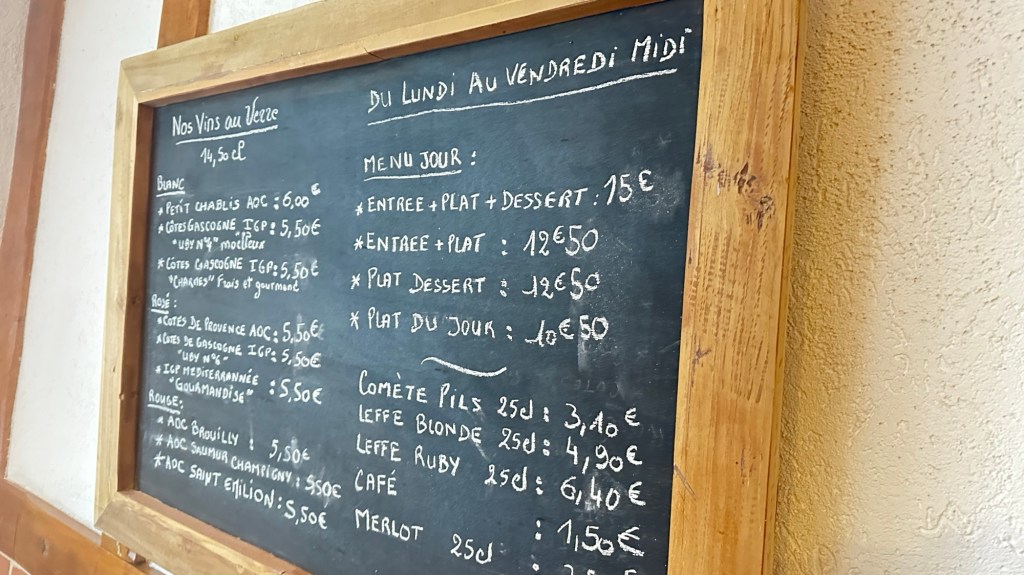 Nos Vins au Verre
14,50 cl
BLANC
* PETIT CHABLIS AOC : 6,00€
* CÔTES GASCOGNE IGP : 5,50€
"UBY N°4" moelleux
* CÔTES GASCOGNE IGP : 5,50€
"CHARMES" Frais et gourmand
ROSÉ :
* COTES DE PROVENCE AOC : 5,50€
* COTES DE GASCOGNE IGP : 5,50€
"UBY N°6"
* IGP MEDITERRANNÉE : 5,50€
"GOURMANDISE"
ROUGE :
* AOC BROUILLY : 5,50€
* AOC SAUMUR CHAMPIGNY : 550€
* AOC SAINT EMILION : 5,50€
DU LUNDI AU VENDREDI MIDI
MENU JOUR :
* ENTREE + PLAT + DESSERT : 15€
* ENTREE + PLAT : 12€50
* PLAT DESSERT : 12€50
* PLAT DU JOUR : 10€50
COMÈTE PILS 25cl : 3,10€
LEFFE BLONDE 25cl : 4,90€
LEFFE RUBY 25cl : 6,40€
CAFÉ : 1,50€
MERLOT 25cl :